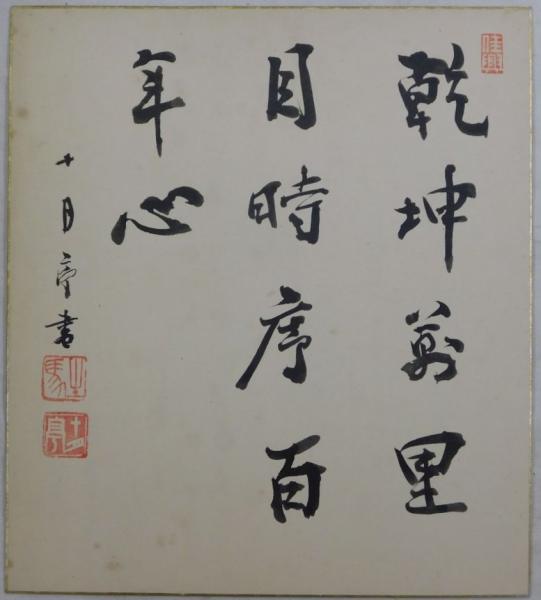 乾坤萬里
目時序百
年心
十月亭書